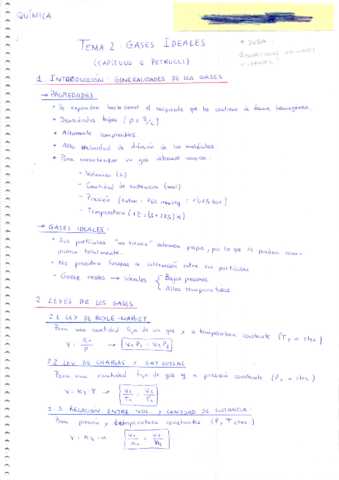 QUÍMICA
TEMA 2: GASES IDEALES
(CAPÍTULO 6 PETRUCCI)
* DUDA:
1. INTRODUCCIÓN: GENERALIDADES DE LOS GASES
→ PROPIEDADES:
• Se expanden hasta llenar el recipiente que los contiene de forma homogénea.
• Densidades bajas (ρ = g/L)
• Altamente compresibles
• Alta velocidad de difusión de las moléculas.
• Para caracterizar un gas debemos conocer:
- Volumen (L)
- Cantidad de sustancia (mol)
- Presión (1 atm = 760 mmHg =
- Temperatura
→ GASES IDEALES:
• Sus partículas "no tienen" volumen propio, por lo que se pueden com-
primir totalmente.
• No presentan fuerzas de interacción entre sus partículas
• Gases reales → ideales { Bajas presiones.
Altas temperaturas.
2. LEYES DE LOS GASES
2.1 LEY DE BOYLE-MARIOT:
Para una cantidad fija de un gas y a temperatura constante (T, n ctes.)
V = K1/P → V1 P1 = V2 P2
2.2 LEY DE CHARLES Y GAY LUSSAC
Para una cantidad fija de gas y a presión constante (P, n ctes.)
V = K2 · T → V1/T1 = V2/T2
2.3 RELACIÓN ENTRE VOL. Y CANTIDAD DE SUSTANCIA:
Para presión y temperatura constantes (P, T ctes.)
V = K3 · n V1/n1 = V2/n2